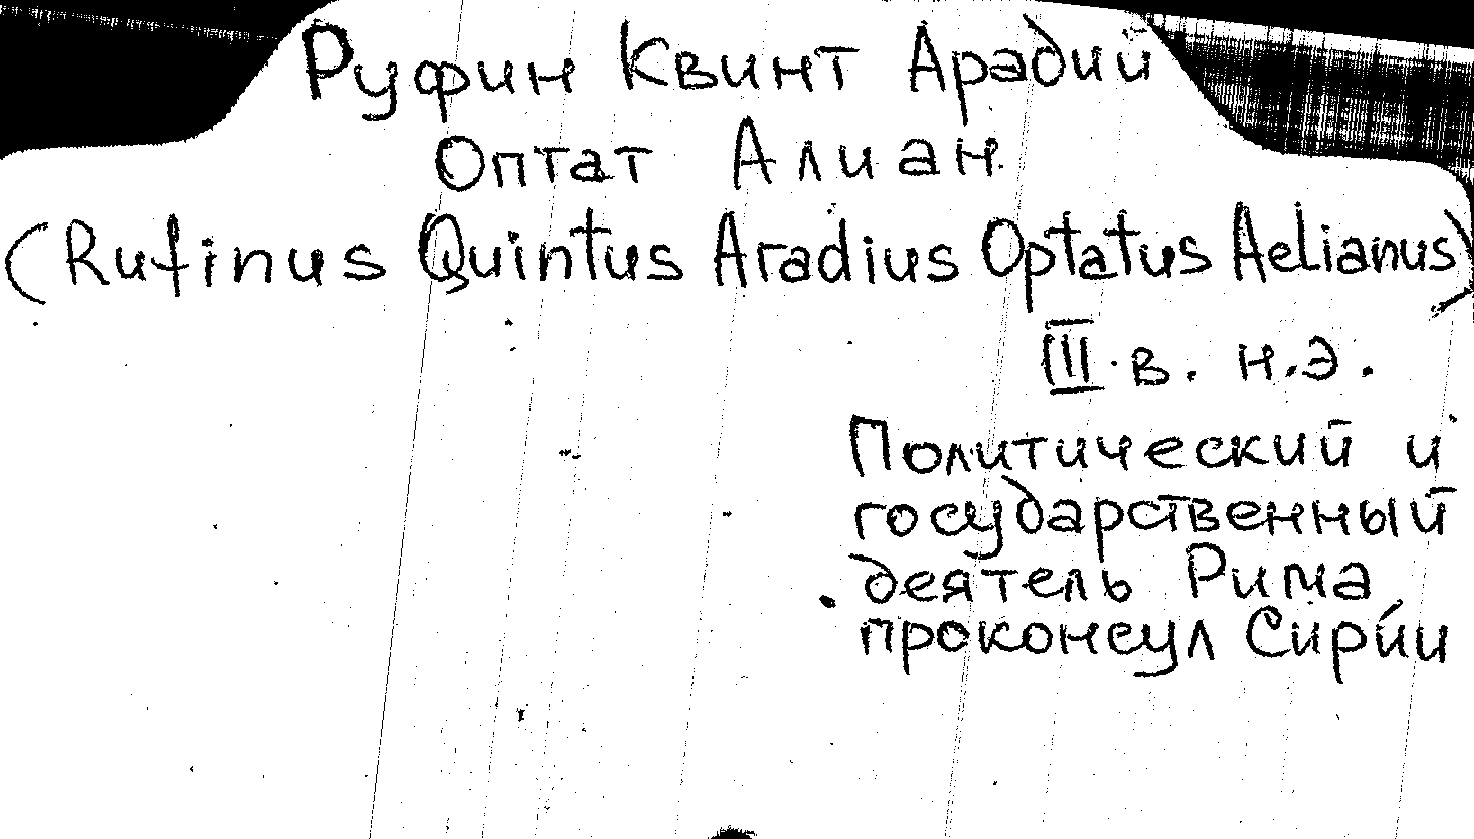 Руфин Квинт Арадий
Оптат Алиан
(Rufinus Quintus Aradius Optatus Aelianus)
III в. н.э.
Политический и
государственный
деятель Рима
проконсул Сирии